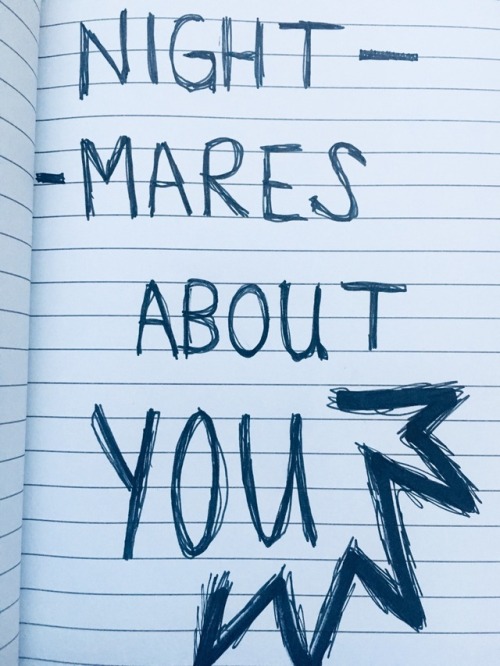 NIGHT-
-MARES
ABOUT
YOU